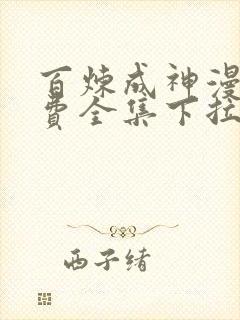 百炼成神漫
费全集下拉
西子绪